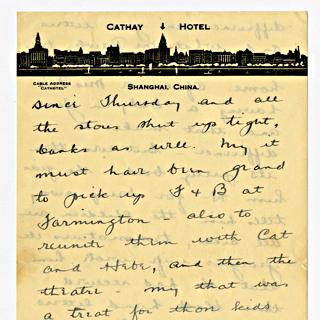 CATHAY HOTEL
CABLE ADDRESS
"CATHOTEL"
SHANGHAI, CHINA.
since Thursday and all
the stores shut up tight,
banks as well. My it
must have been grand
to pick up F & B at
Farmington also to
reunite them with Cat
and Hebe, and then the
theatre - my that was
a treat for those kids